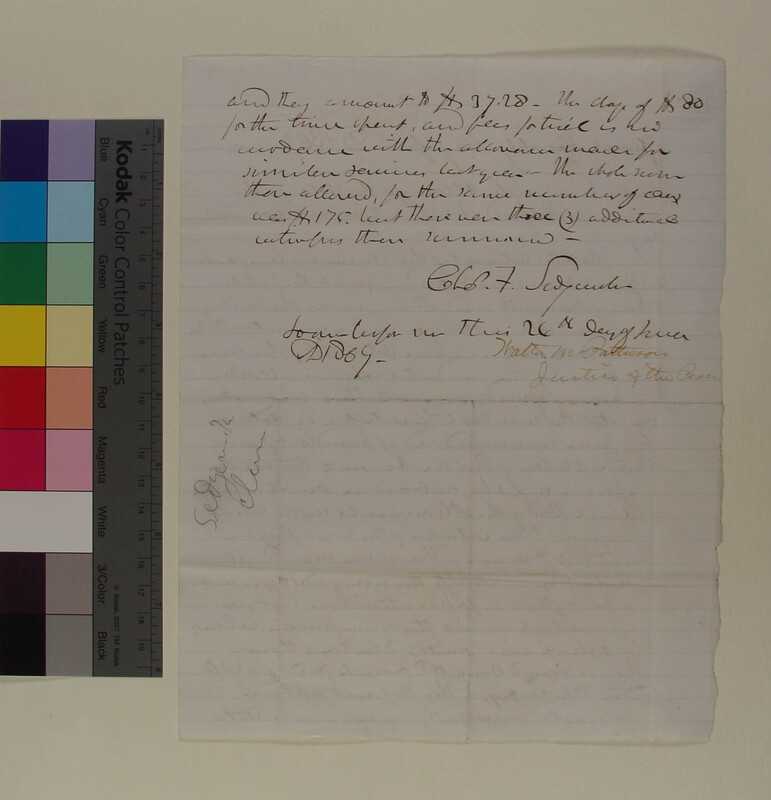 and they amount to $37.28 - The charge of $80
for the time spent, and fees for trial is in
with the allowance made for
similar services last year - The whole sum
then allowed, for the same number of days
was $175. but there were three (3) additional
witnesses then summoned -
Chs. F. Sedgwick
Sworn before me this 26th day of June
AD 1867 -
Walter M Patterson
Justice of the Peace
Sedgwick
Claim
Kodak Color Control Patches
Blue
Cyan
Green
Yellow
Red
Magenta
White
3/Color
Black
© Kodak, 2007 TM: Kodak